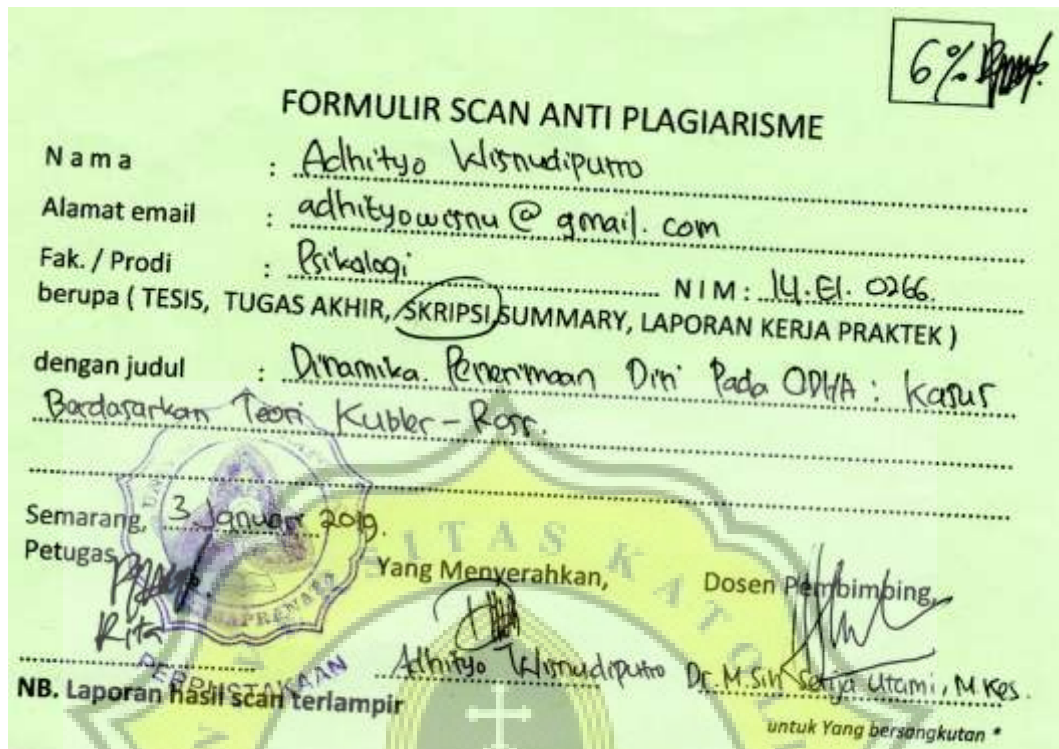 6%
FORMULIR SCAN ANTI PLAGIARISME
Nama : Adhityo Wisnudiputro
Alamat email : adhityowisnu@gmail.com
Fak. / Prodi : Psikologi NIM: 14.E1.0266.
berupa ( TESIS, TUGAS AKHIR, SKRIPSI, SUMMARY, LAPORAN KERJA PRAKTEK )
dengan judul : Dinamika Penerimaan Diri Pada ODHA : Kasus
Berdasarkan Teori Kubler-Ross.
Semarang, 3 Januari 2019.
Petugas, Yang Menyerahkan, Dosen Pembimbing,
Rita Adhityo Wisnudiputro Dr. M Sih Setija Utami, M.Kes.
PERPUSTAKAAN
NB. Laporan hasil scan terlampir
untuk Yang bersangkutan *
ITAS KATOL